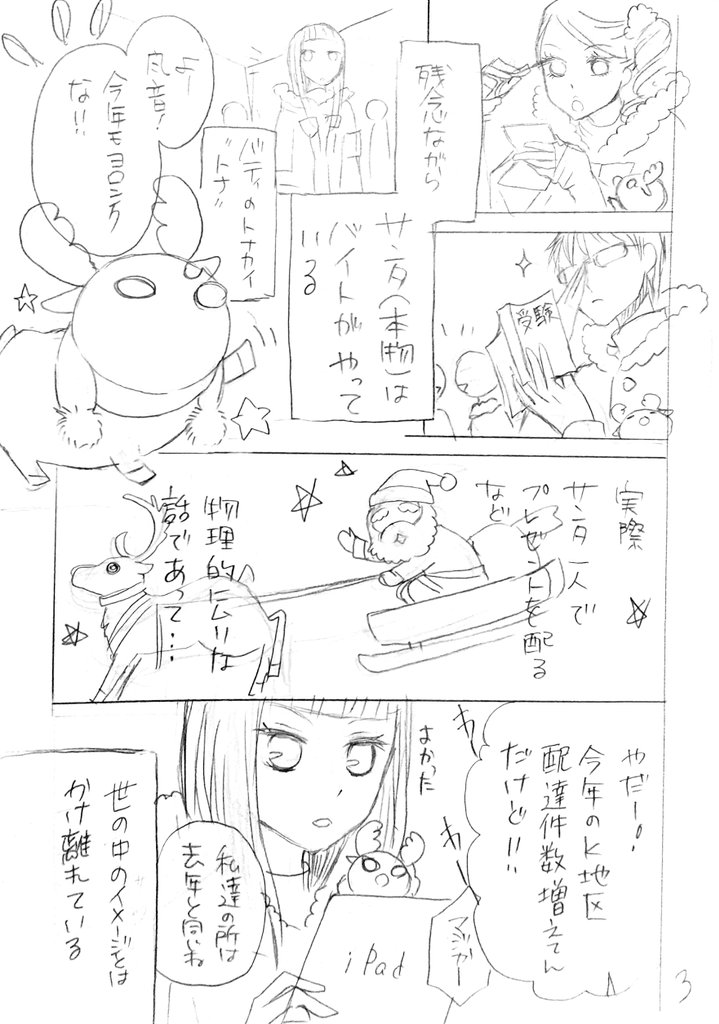 残念ながら
サンタ(本物)は
バイトがやって
いる
受験
バディのトナカイ
"トナ"
よー
凩音!
今年モヨロシク
な!!
実際
サンタ一人で
プレゼントを配る
など
物理的にムリな
話であって…
やだー!
今年のK地区
配達件数増えてん
だけど!!
わ
わ
マジかー
よかった
私達の所は
去年と同いね
iPad
世の中のイメージとは
かけ離れている
3